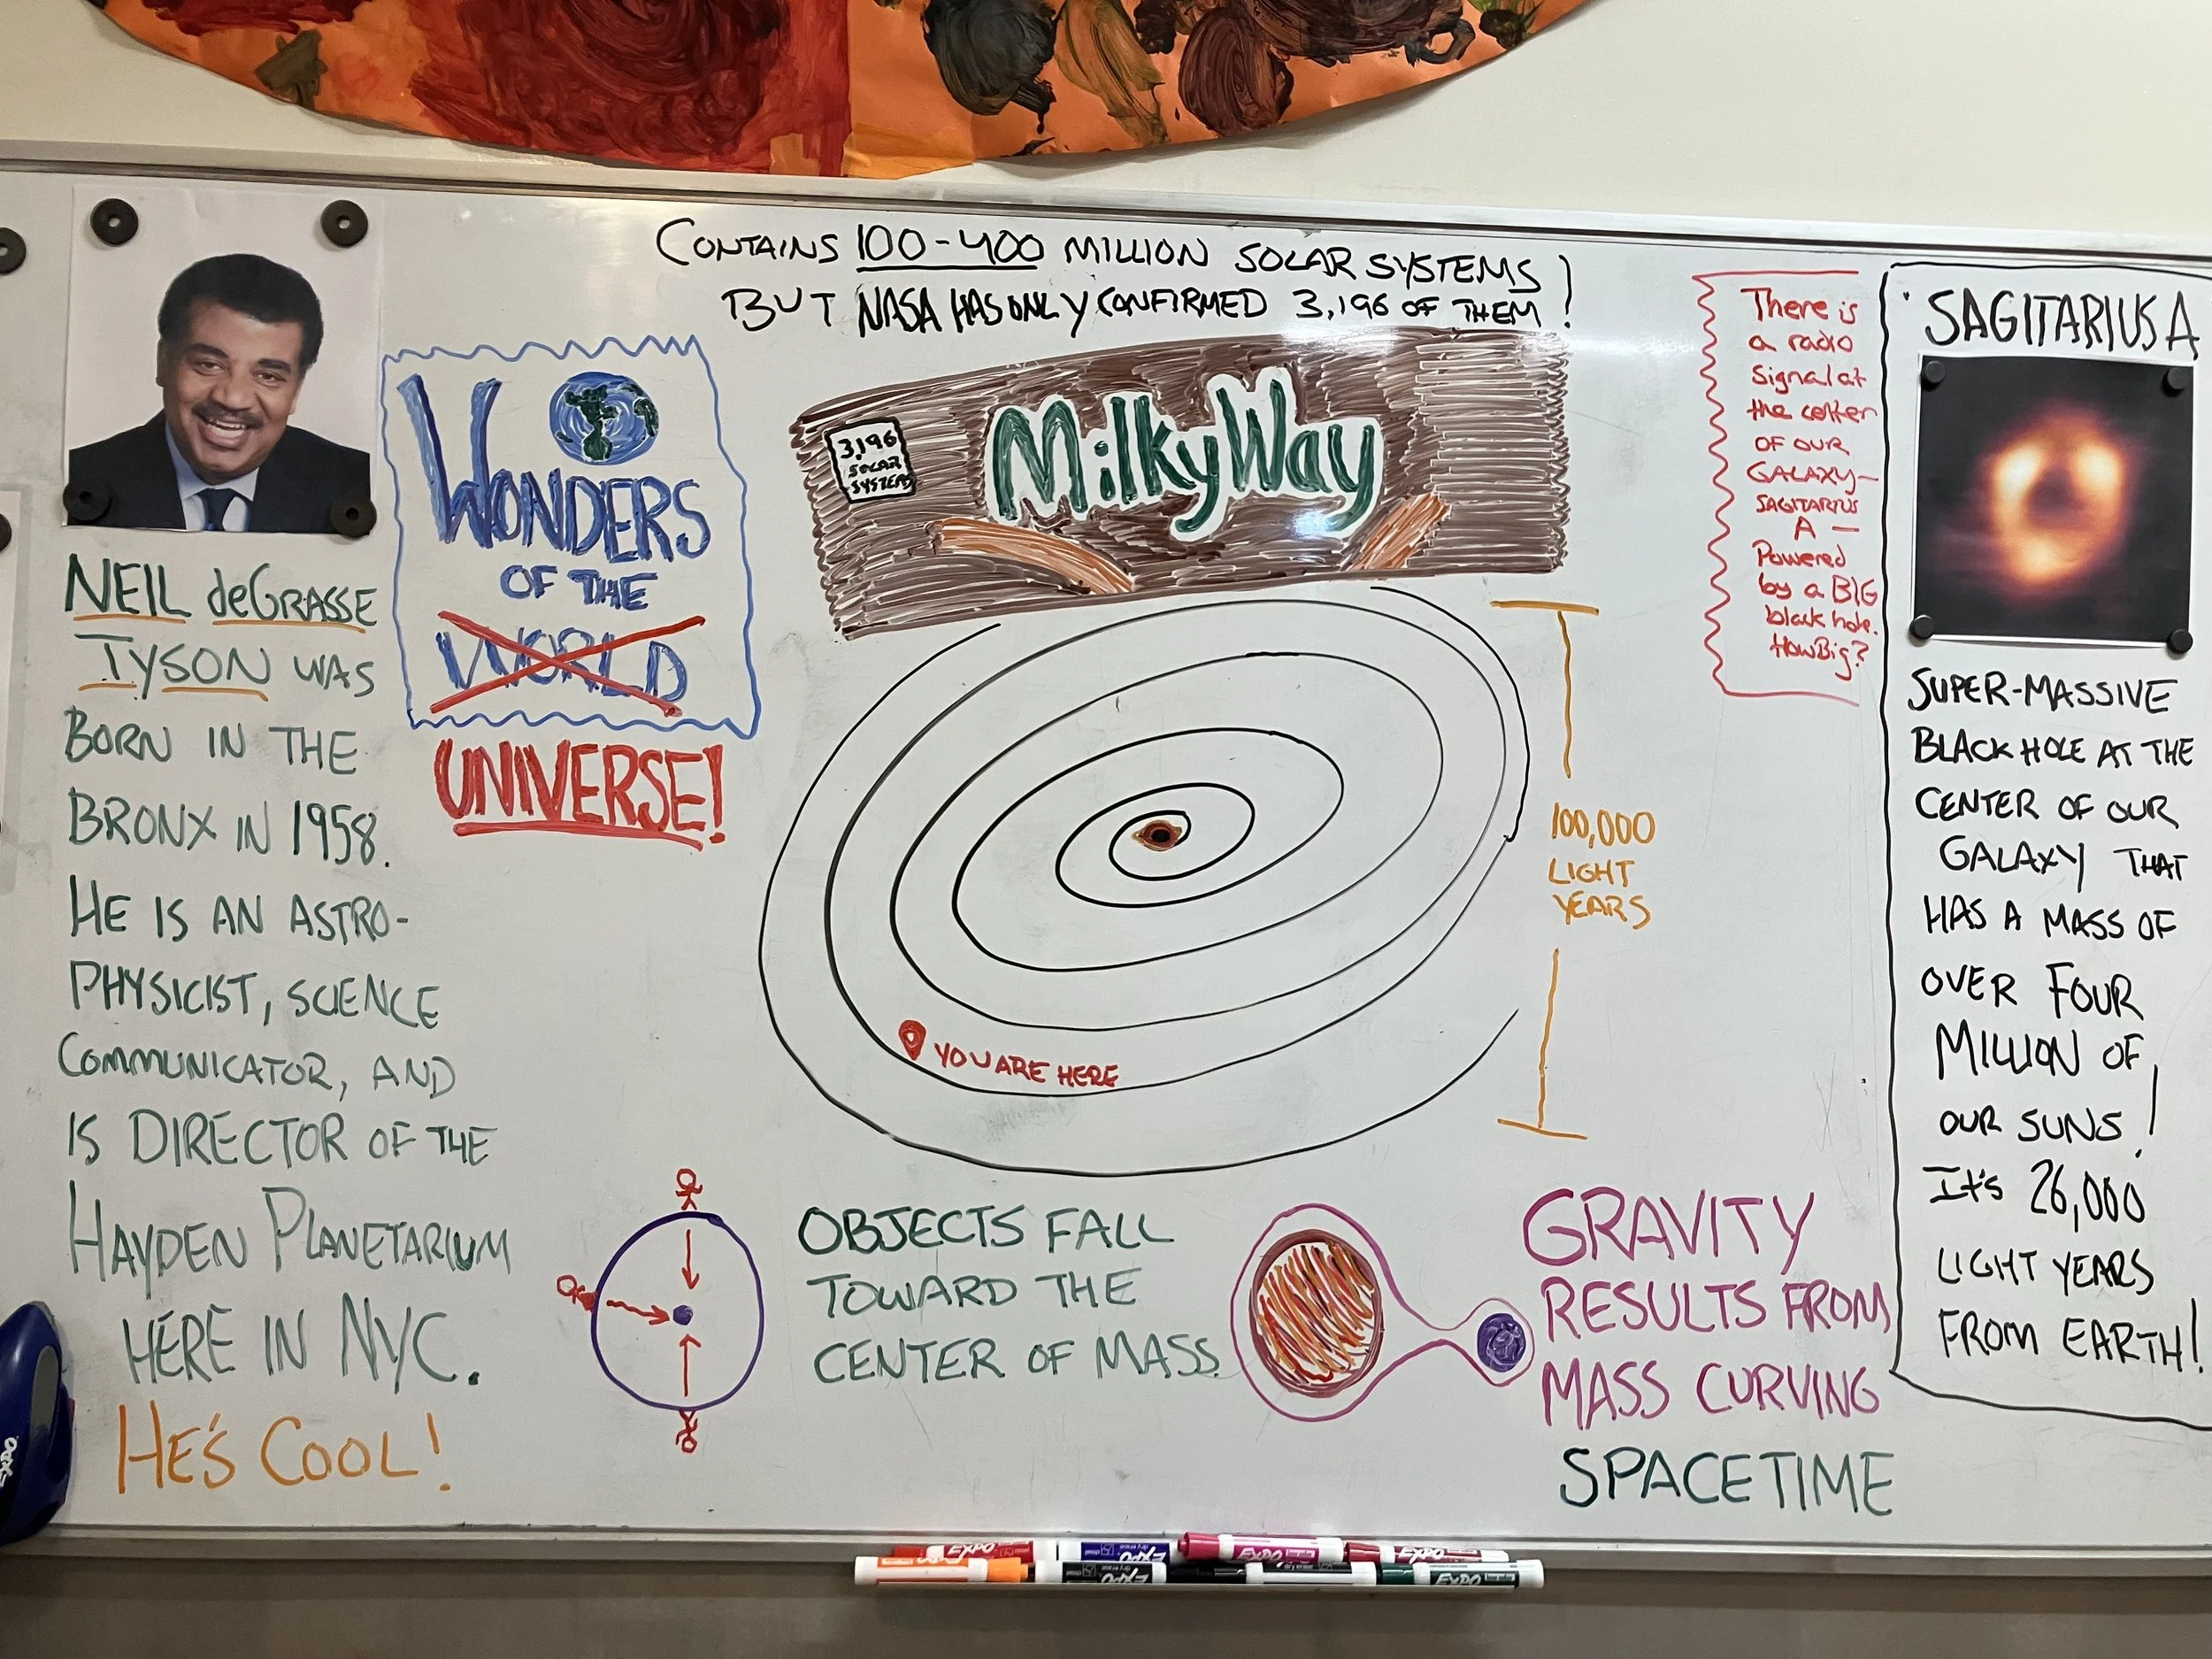 CONTAINS 100-400 MILLION SOLAR SYSTEMS
BUT NASA HAS ONLY CONFIRMED 3,196 OF THEM!
WONDERS
OF THE
WORLD
UNIVERSE!
3,196
SOLAR
SYSTEMS
MilkyWay
NEIL deGRASSE
TYSON WAS
BORN IN THE
BRONX IN 1958.
HE IS AN ASTRO-
PHYSICIST, SCIENCE
COMMUNICATOR, AND
IS DIRECTOR OF THE
HAYDEN PLANETARIUM
HERE IN NYC.
HE'S COOL!
100,000
LIGHT
YEARS
YOU ARE HERE
OBJECTS FALL
TOWARD THE
CENTER OF MASS
GRAVITY
RESULTS FROM
MASS CURVING
SPACETIME
There is
a radio
signal at
the center
OF OUR
GALAXY—
SAGITARIUS
A —
Powered
by a BIG
black hole.
How Big?
SAGITARIUS A
SUPER-MASSIVE
BLACK HOLE AT THE
CENTER OF OUR
GALAXY THAT
HAS A MASS OF
OVER FOUR
MILLION OF
OUR SUNS!
It's 26,000
LIGHT YEARS
FROM EARTH!
EXPO
EXPO
EXPO
EXPO
EXPO
EXPO
EXPO